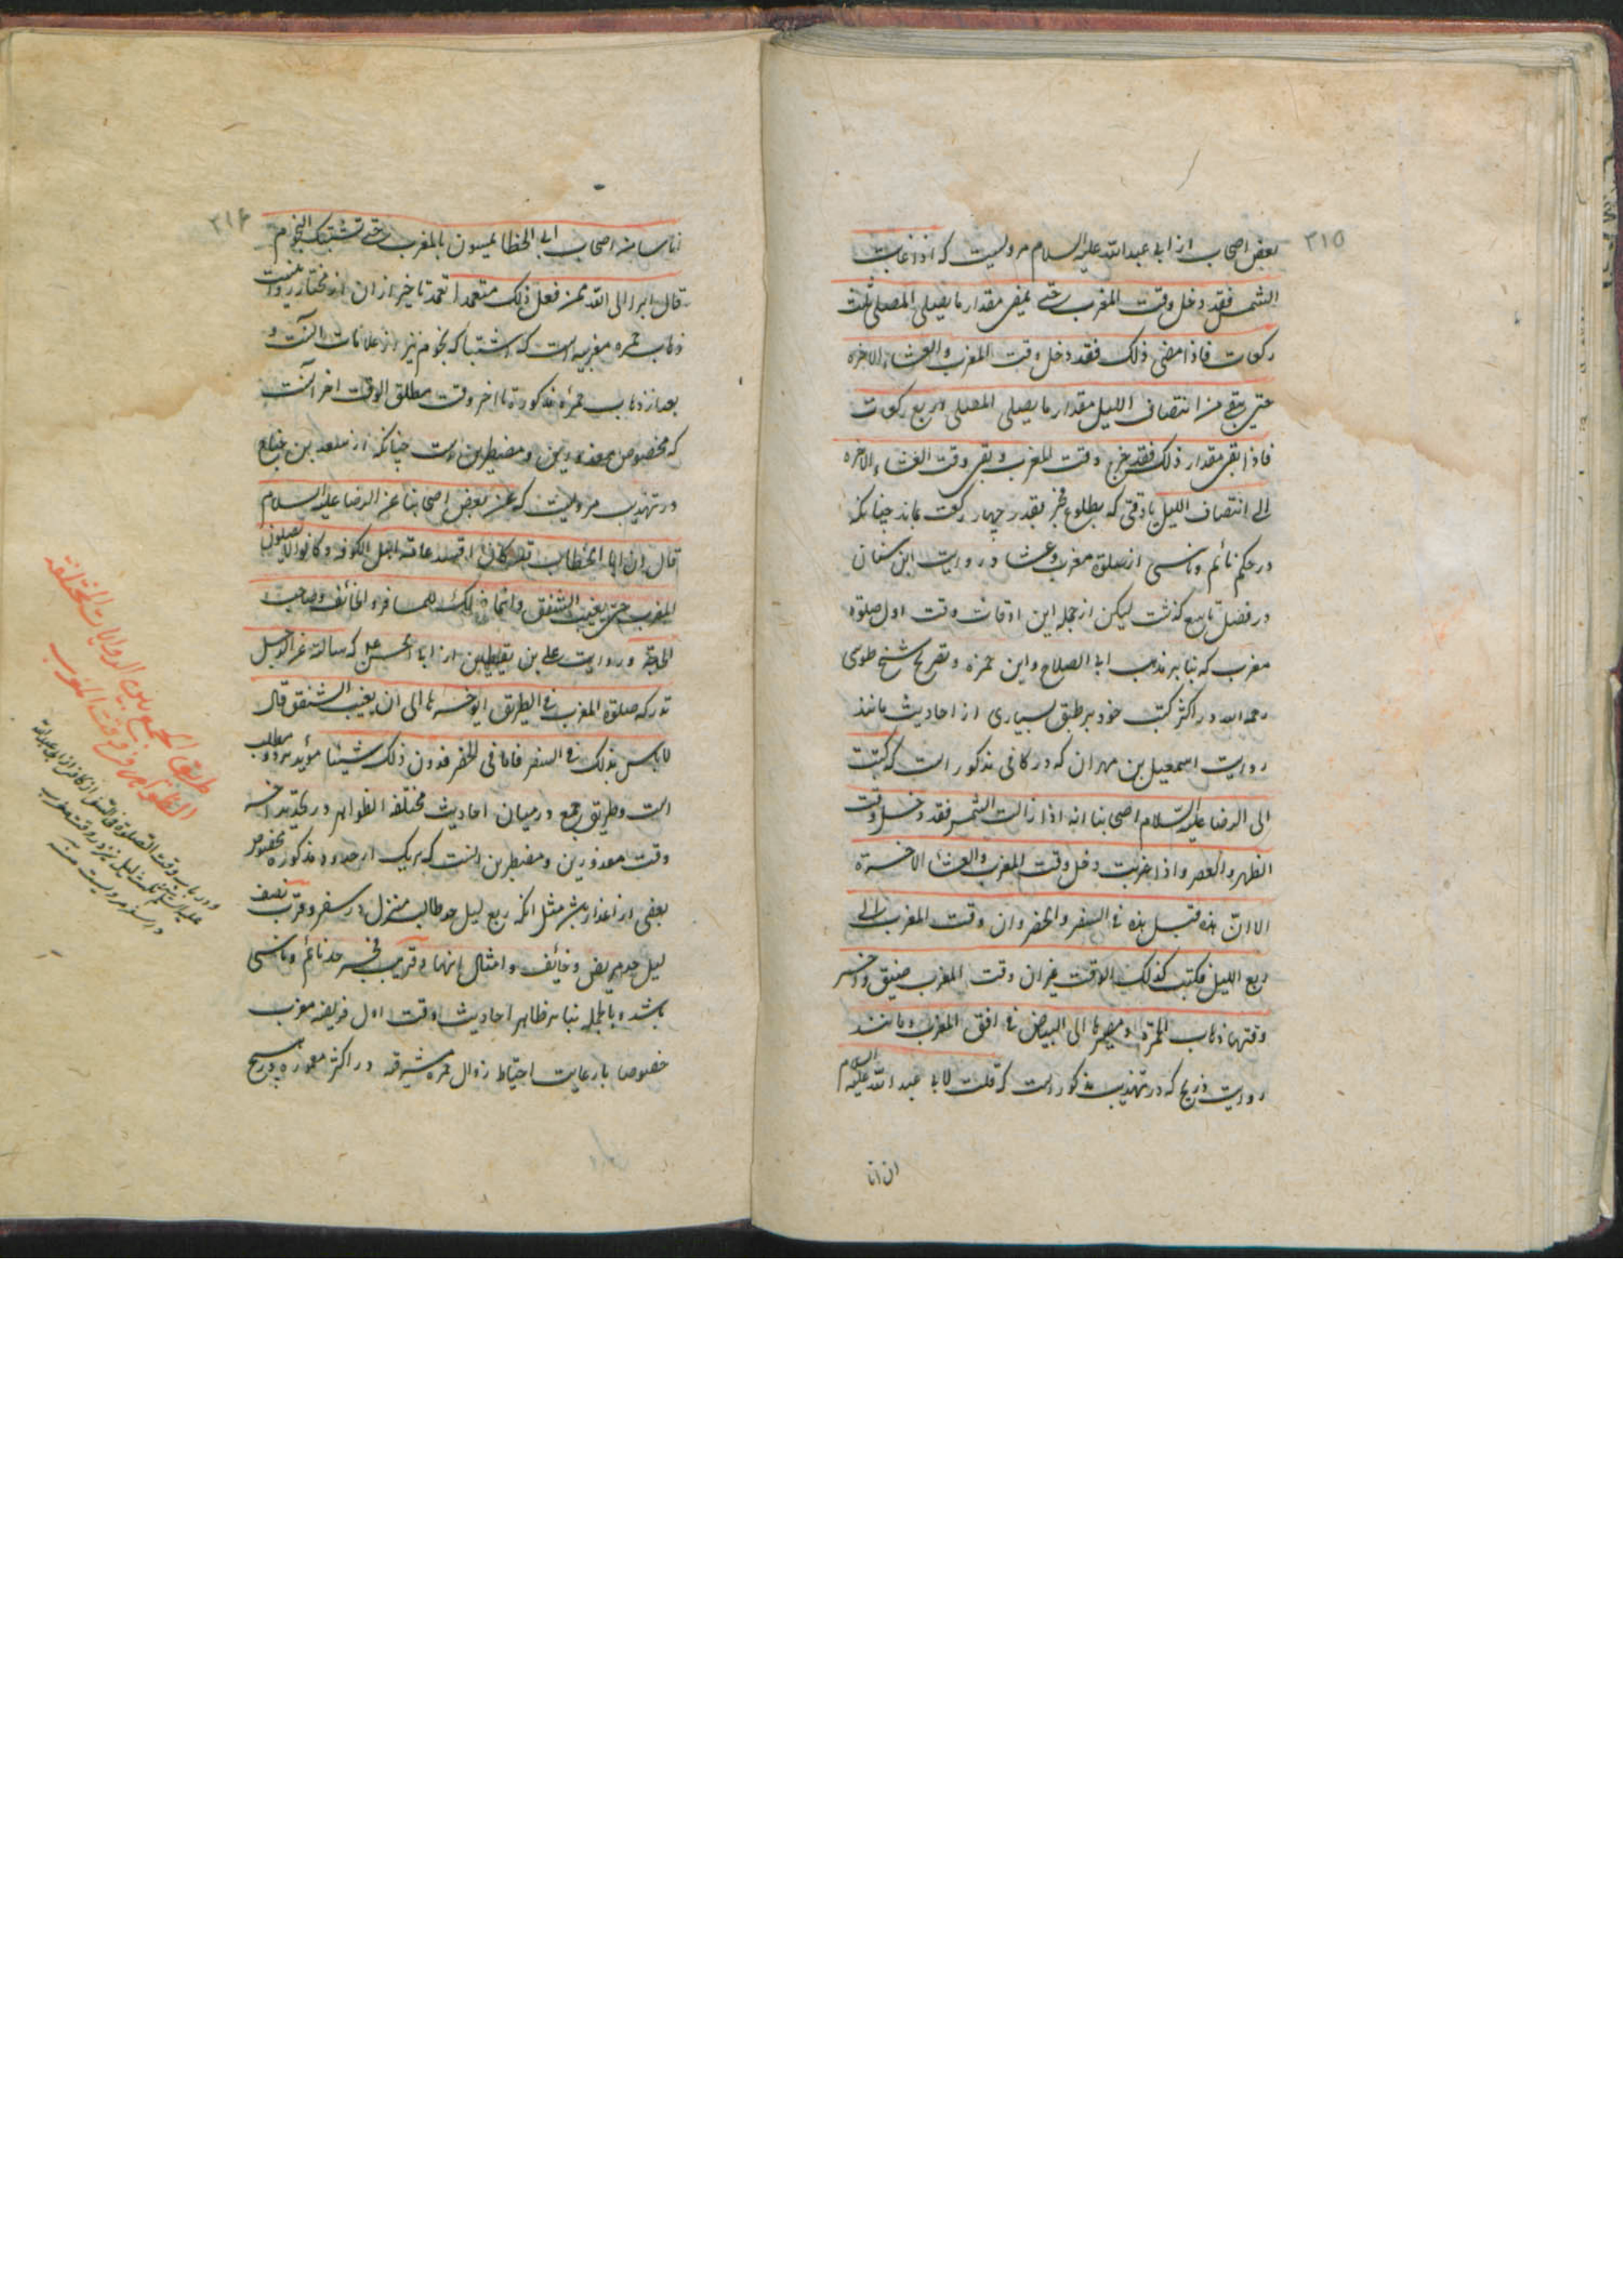 ۳۱۵
بعض اصحاب از ابی عبدالله علیه السلام مرویست که اذا غابت
الشمس فقد دخل وقت المغرب حتی یمضی مقدار ما یصلی المصلی ثلث
رکعات فاذا مضی ذلک فقد دخل وقت المغرب والعشاء الاخره
حتی یبقی من انتصاف اللیل مقدار ما یصلی المصلی اربع رکعات
فاذا بقی مقدار ذلک فقد خرج وقت المغرب و بقی وقت العشاء الاخره
الی انتصاف اللیل یا وقتی که بطلوع فجر بقدر چهار رکعت بماند چنانکه
در حکم نائم و ناسی از صلوة مغرب و عشا در روایت ابن سنان
در فصل تاسع گذشت لیکن از جمله این اوقات وقت اول صلوة
مغرب که بنابر مذهب ابی الصلاح و ابن حمزه و تصریح شیخ طوسی
رحمه الله در اکثر کتب خود بر طبق بسیاری از احادیث مانند
روایت اسمعیل بن مهران که در کافی مذکور است که کتبت
الی الرضا علیه السلام اصحابنا انه اذا زالت الشمس فقد دخل وقت
الظهر والعصر واذا غربت دخل وقت المغرب والعشاء الاخرة
الا ان هذه قبل هذه فی السفر والحضر وان وقت المغرب الی
ربع اللیل فکتب کذلک الوقت غیر ان وقت المغرب ضیق واخر
وقتها ذهاب الحمرة ومصیرها الی البیاض فی افق المغرب و مانند
روایت ذریح که در تهذیب مذکور است که قلت لابی عبد الله علیه السلام
ان انا
۳۱۶
اناسا من اصحاب ابی الخطا یمسون بالمغرب حتی تشتبک النجوم
قال ابرا الی الله ممن فعل ذلک متعمدا تعمد تاخیر از ان از مختار روا نیست
ذهاب حمره مغربیه است که اشتباک نجوم نیز از علامات آنست و
بعد از ذهاب حمره مذکوره تا اخر وقت مطلق الوقت اخر آنست
که مخصوص معذورین و مضطرین است چنانکه از سعد بن جناح
در تهذیب مرویست که عن بعض اصحابنا عن الرضا علیه السلام
قال ان ابا الخطاب قد کان افسد عامة اهل الکوفه و کانوا لا یصلون
المغرب حتی یغیب الشفق وانما ذلک للمسافر والخائف وصاحب
الحاجة و روایت علی بن یقطین از ابا الحسن ع که سالته عن الرجل
تدرکه صلوة المغرب فی الطریق ایؤخرها الی ان یغیب الشفق قال
لا باس بذلک فی السفر فاما فی الحضر فدون ذلک شیئا مؤید هر دو مطلب
است و طریق جمع در میان احادیث مختلفة الظواهر در تحدید آخر
وقت معذورین و مضطرین آنست که هر یک از حدود مذکوره مخصوص
بعضی از اعذار باشد مثل انکه ربع لیل حد طالب منزل در سفر و قرب نصف
لیل حد مریض و خائف و امثال اینها و قریب فجر حد نائم و ناسی
باشد و بالجمله بنابر ظاهر احادیث وقت اول فریضه مغرب
خصوصا با رعایت احتیاط زوال حمره مشرقیه در اکثر معموره بربع
طریق الجمع بین الروایات المختلفة
الظواهر فی وقت المغرب
و در باب وقت الصلوة فی السفر از کافی از ابو عبدالله
علیه السلام ثلث لیل نیز در وقت مغرب
در سفر مرویست منه